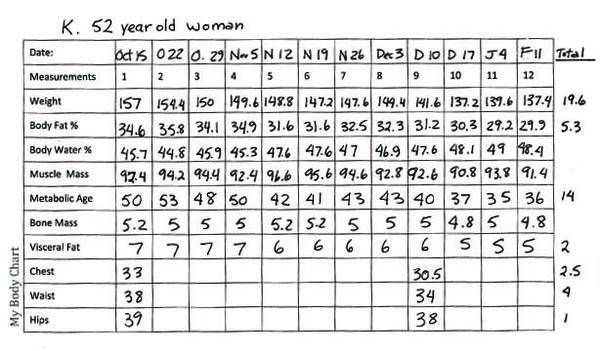 K. 52 year old woman
Date: Oct 15 O 22 O. 29 Nov 5 N 12 N 19 N 26 Dec 3 D 10 D 17 J 4 F 11 Total
Measurements 1 2 3 4 5 6 7 8 9 10 11 12
Weight 157 154.4 150 149.6 148.8 147.2 147.6 144.4 141.6 137.2 139.6 137.4 19.6
Body Fat % 34.6 35.8 34.1 34.9 31.6 31.6 32.5 32.3 31.2 30.3 29.2 29.9 5.3
Body Water % 45.7 44.8 45.9 45.3 47.6 47.6 47 46.9 47.6 48.1 49 48.4
Muscle Mass 97.4 94.2 94.4 92.4 96.6 95.6 94.6 92.8 92.6 90.8 93.8 91.4
Metabolic Age 50 53 48 50 42 41 43 43 40 37 35 36 14
Bone Mass 5.2 5 5 5 5.2 5.2 5 5 5 4.8 5 4.8
Visceral Fat 7 7 7 7 6 6 6 6 6 5 5 5 2
Chest 33 30.5 2.5
Waist 38 34 4
Hips 39 38 1
My Body Chart